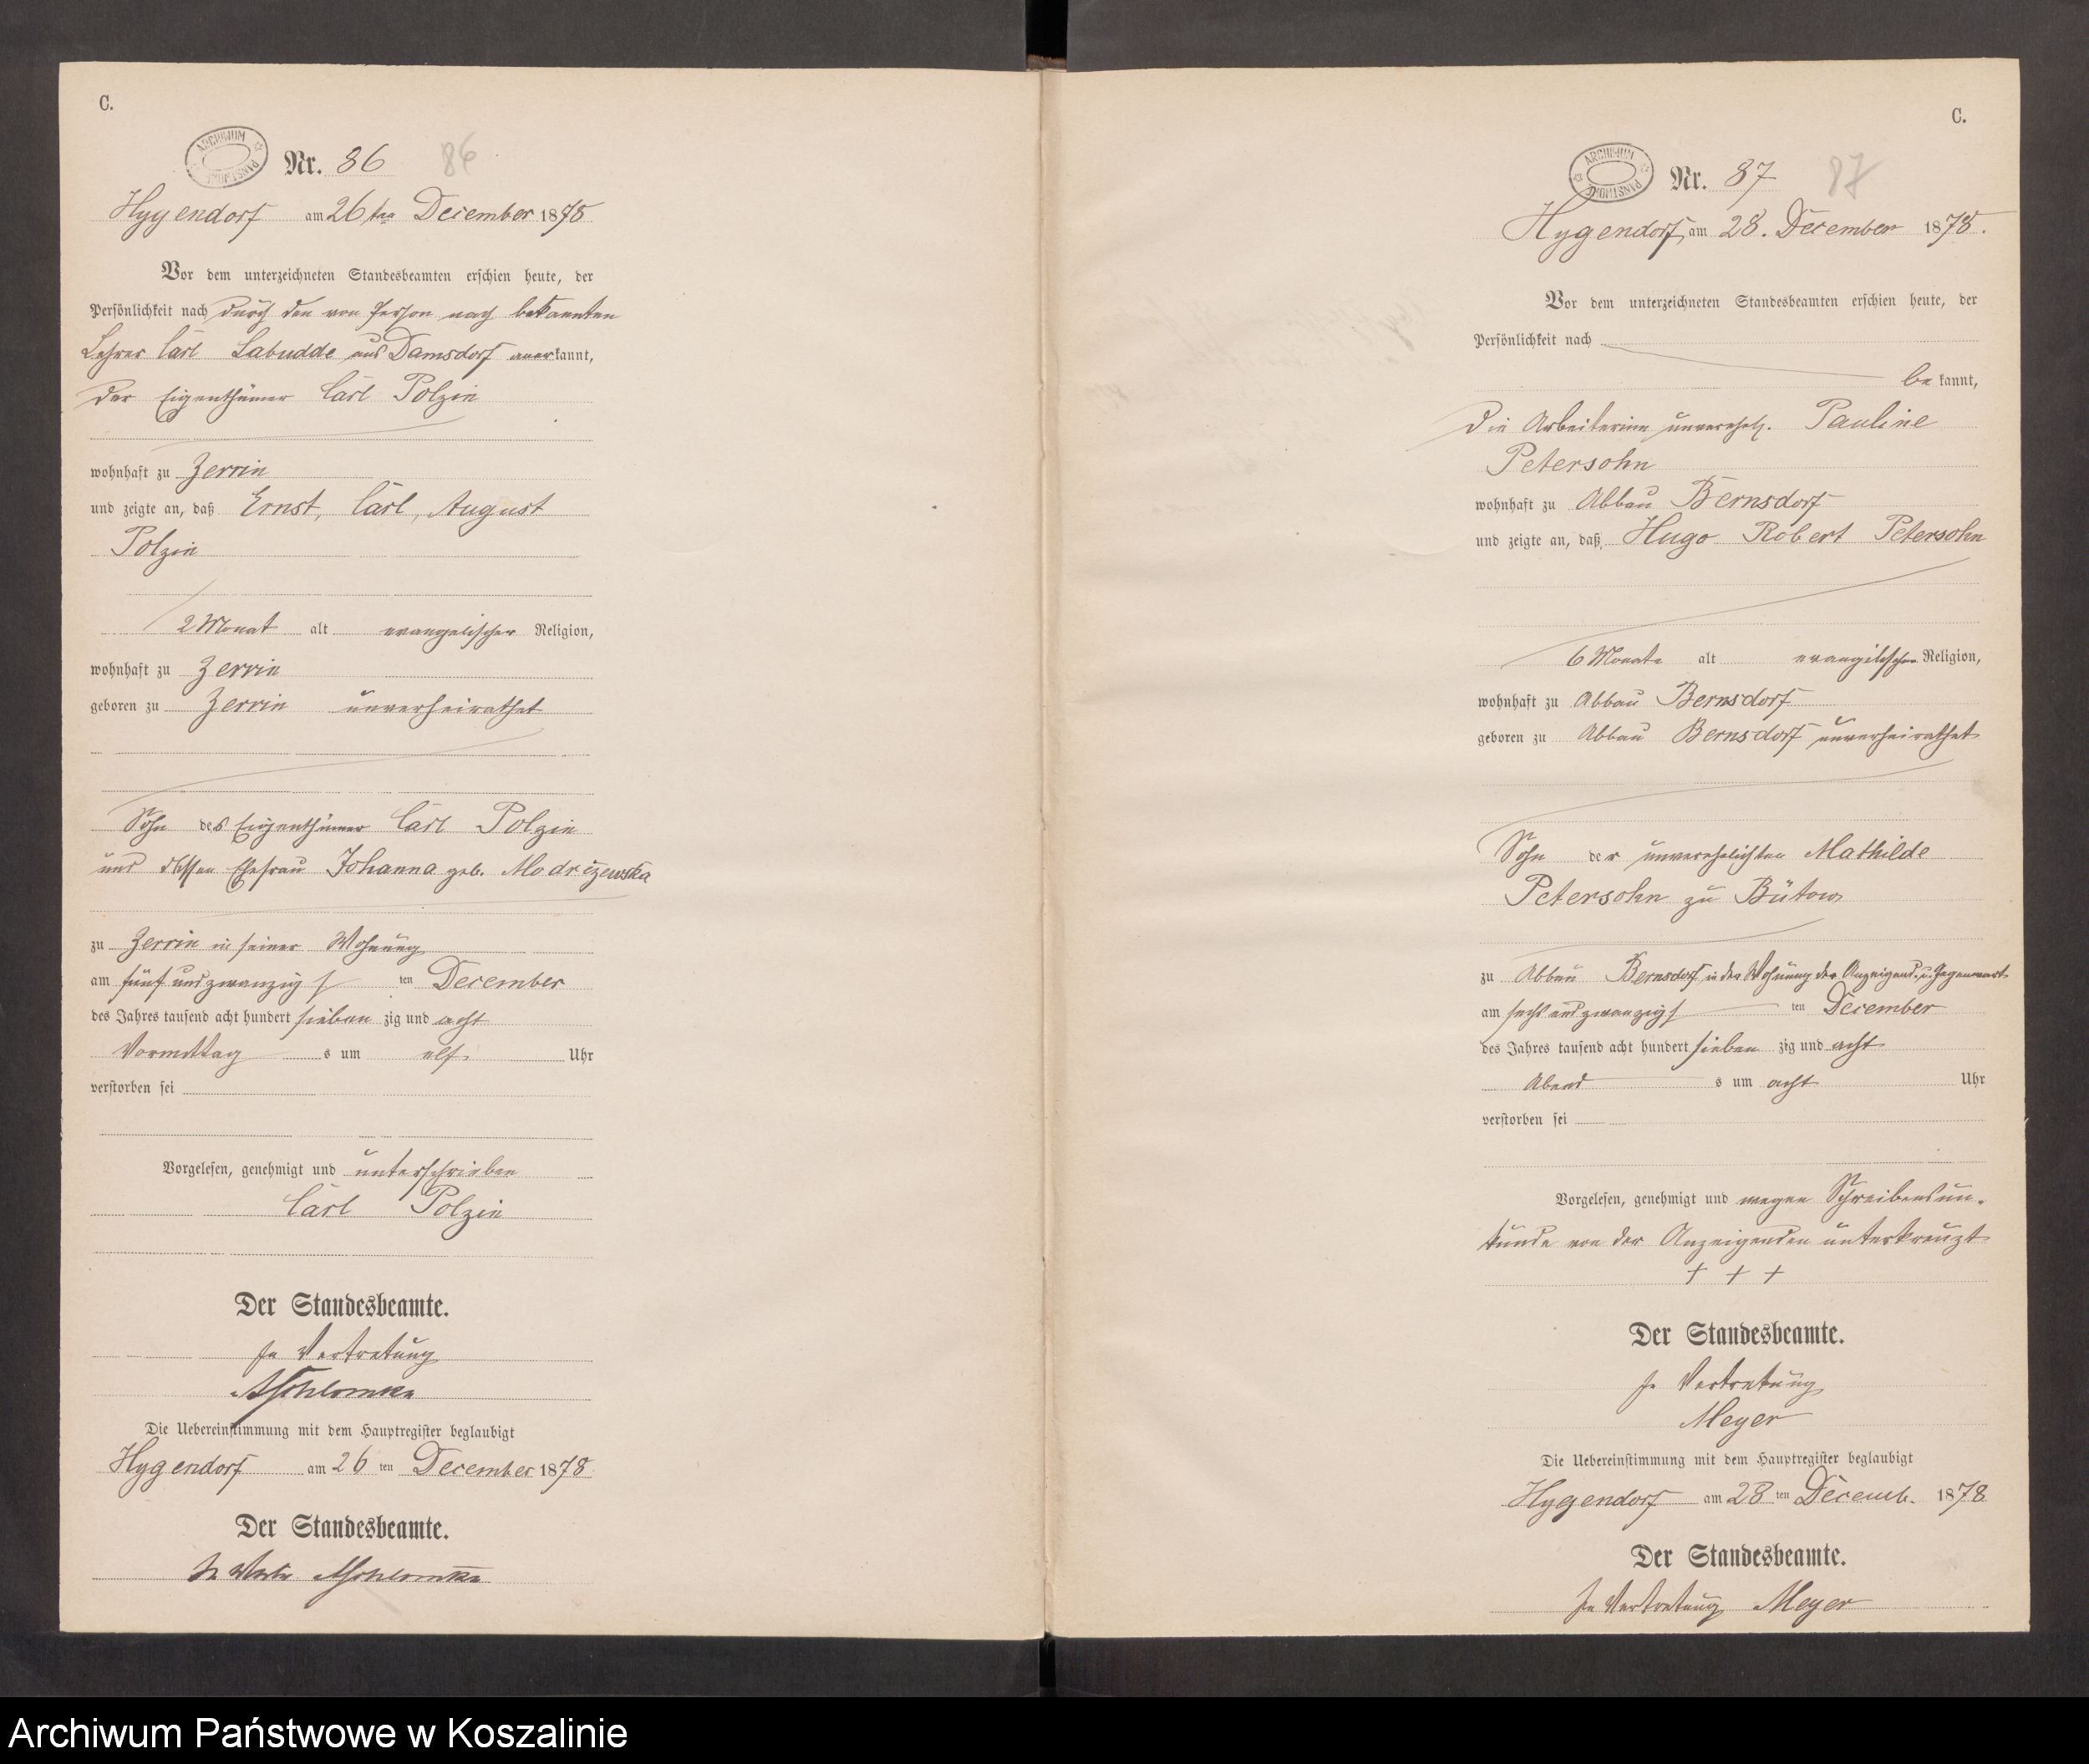 C.
ARCHIWUM PAŃSTWOWE
Nr. 86 86
Hygendorf am 26ten December 1878
Vor dem unterzeichneten Standesbeamten erschien heute, der
Persönlichkeit nach durch den von Person nach bekannten
Lehrer Carl Labudde aus Damsdorf anerkannt,
der Eigenthümer Carl Polzin
wohnhaft zu Zerrin
und zeigte an, daß Ernst, Carl, August
Polzin
2 Monat alt evangelischer Religion,
wohnhaft zu Zerrin
geboren zu Zerrin unverheirathet
Sohn des Eigenthümer Carl Polzin
und dessen Ehefrau Johanna geb. Modrizewska
zu Zerrin in seiner Wohnung
am fünf und zwanzigsten December
des Jahres tausend acht hundert sieben zig und acht
Vormittags um elf Uhr
verstorben sei
Vorgelesen, genehmigt und unterschrieben
Carl Polzin
Der Standesbeamte.
In Vertretung
Die Uebereinstimmung mit dem Hauptregister beglaubigt
Hygendorf am 26 ten December 1878
Der Standesbeamte.
C.
ARCHIWUM PAŃSTWOWE
Nr. 87 87
Hygendorf, am 28. December 1878.
Vor dem unterzeichneten Standesbeamten erschien heute, der
Persönlichkeit nach
be kannt,
Die Arbeiterinn unverehel. Pauline
Petersohn
wohnhaft zu Abbau Bernsdorf
und zeigte an, daß Hugo Robert Petersohn
6 Monate alt evangelischen Religion,
wohnhaft zu Abbau Bernsdorf
geboren zu Abbau Bernsdorf unverheirathet
Sohn der unverehelichten Mathilde
Petersohn zu Bütow
zu Abbau Bernsdorf in der Wohnung der Anzeigend. u. Gegenwart
am sechs und zwanzigsten December
des Jahres tausend acht hundert sieben zig und acht
Abends um acht Uhr
verstorben sei
Vorgelesen, genehmigt und wegen Schreibensun-
kunde von der Anzeigenden unterkreuzt
+ + +
Der Standesbeamte.
In Vertretung
Meyer
Die Uebereinstimmung mit dem Hauptregister beglaubigt
Hygendorf am 28 ten Decemb. 1878
Der Standesbeamte.
In Vertretung Meyer
Archiwum Państwowe w Koszalinie